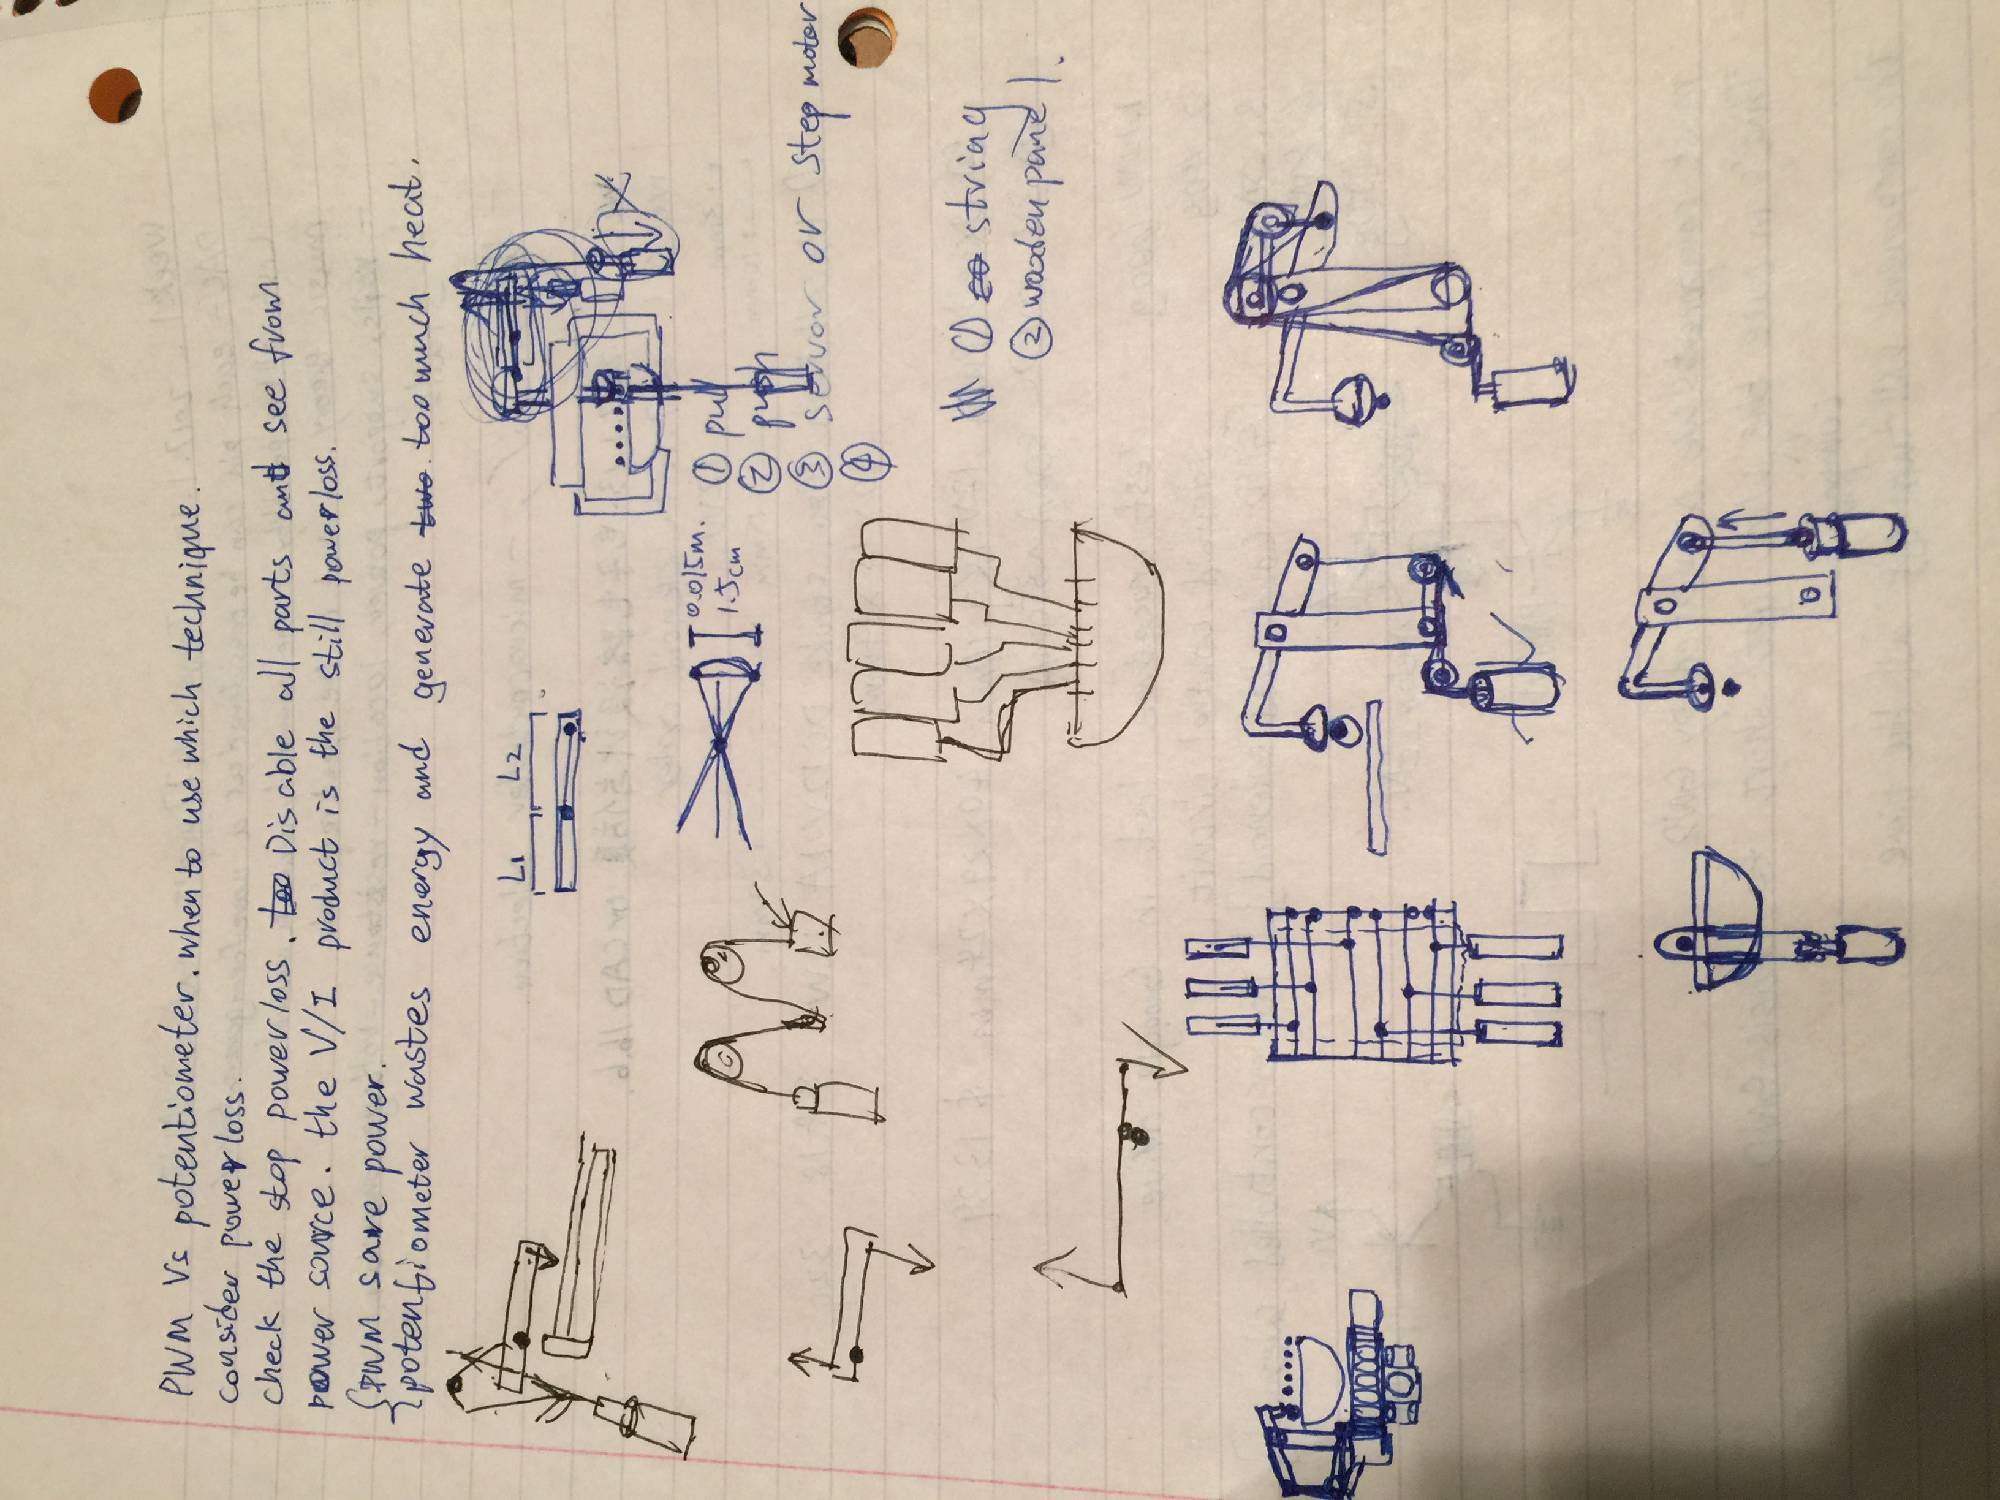 PWM Vs potentiometer. when to use which technique.
consider powerloss.
check the stop powerloss. too Disable all parts and see from
power source. the V/I product is the still powerloss.
{PWM save power.
{potentiometer wastes energy and generate two too much heat.
L1 L2
0.015m.
1.5cm
① pull
② push
③ servor or step motor
④
① string
② wooden panel.